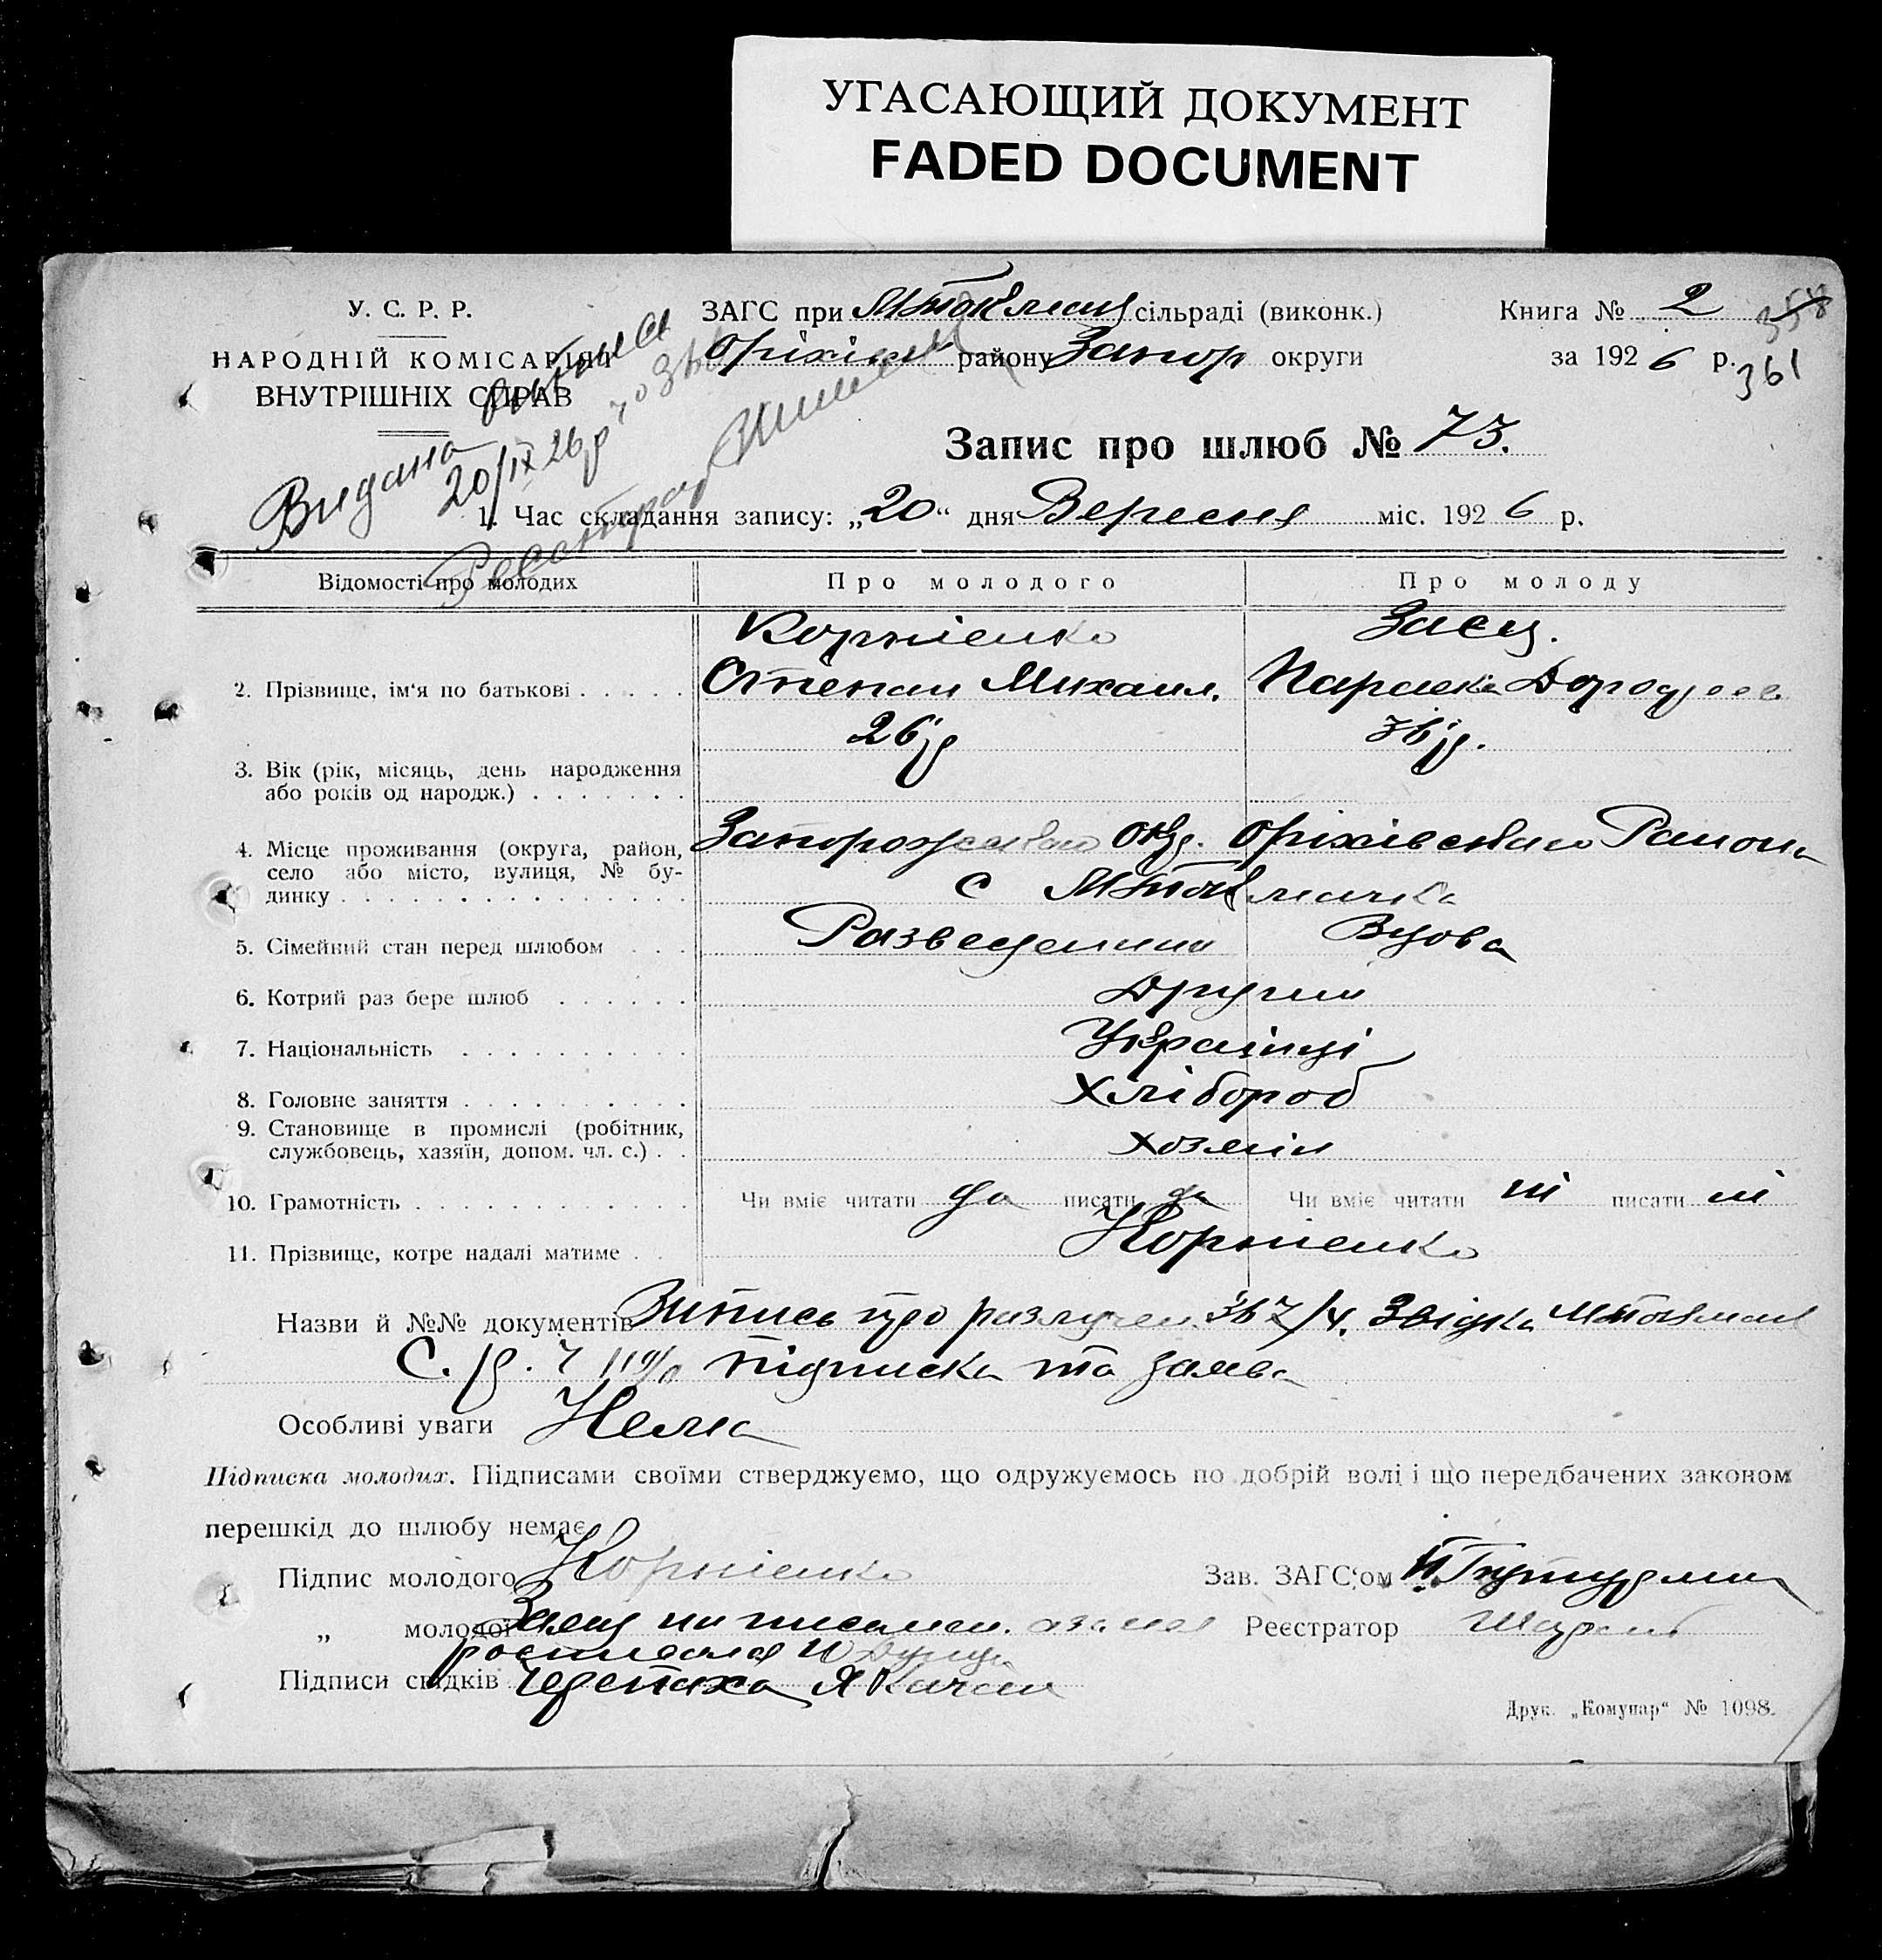 УГАСАЮЩИЙ ДОКУМЕНТ
FADED DOCUMENT
У. С. Р. Р.
НАРОДНІЙ КОМІСАРІЯТ
ВНУТРІШНІХ СПРАВ
ЗАГС при сільраді (виконк.)
Оріхівськ району Запор округи
Книга № 2
за 1926 р.
358
361
Видана
20/IX 26 р
Запис про шлюб № 73.
1. Час складання запису: „20“ дня Вересня міс. 1926 р.
Відомості про молодих Про молодого Про молоду
Корнієнко Заєц.
2. Прізвище, ім'я по батькові Степан Михаил. Параска
26 р
3. Вік (рік, місяць, день народження
або років од народж.)
4. Місце проживання (округа, район,
село або місто, вулиця, № бу-
динку
Запорожського Окр. Оріхівського Района
с М Токмачка
5. Сімейний стан перед шлюбом Разведенний Вдова
6. Котрий раз бере шлюб Другий
7. Національність Українці
8. Головне заняття Хлібороб
9. Становище в промислі (робітник,
службовець, хазяїн, допом. чл. с.) хозяін
10. Грамотність Чи вміє читати да писати да Чи вміє читати ні писати ні
11. Прізвище, котре надалі матиме Корнієнко
Назви й №№ документів Випись про разлучен. Звідка
С. р. підписка та заява
Особливі уваги Нема
Підписка молодих. Підписами своїми стверджуємо, що одружуємось по добрій волі і що передбачених законом
перешкід до шлюбу немає
Підпис молодого Корнієнко Зав. ЗАГС'ом
„ молодої Заєц Реєстратор
Підписи свідків Я Качан
Друк. „Комунар“ № 1098.